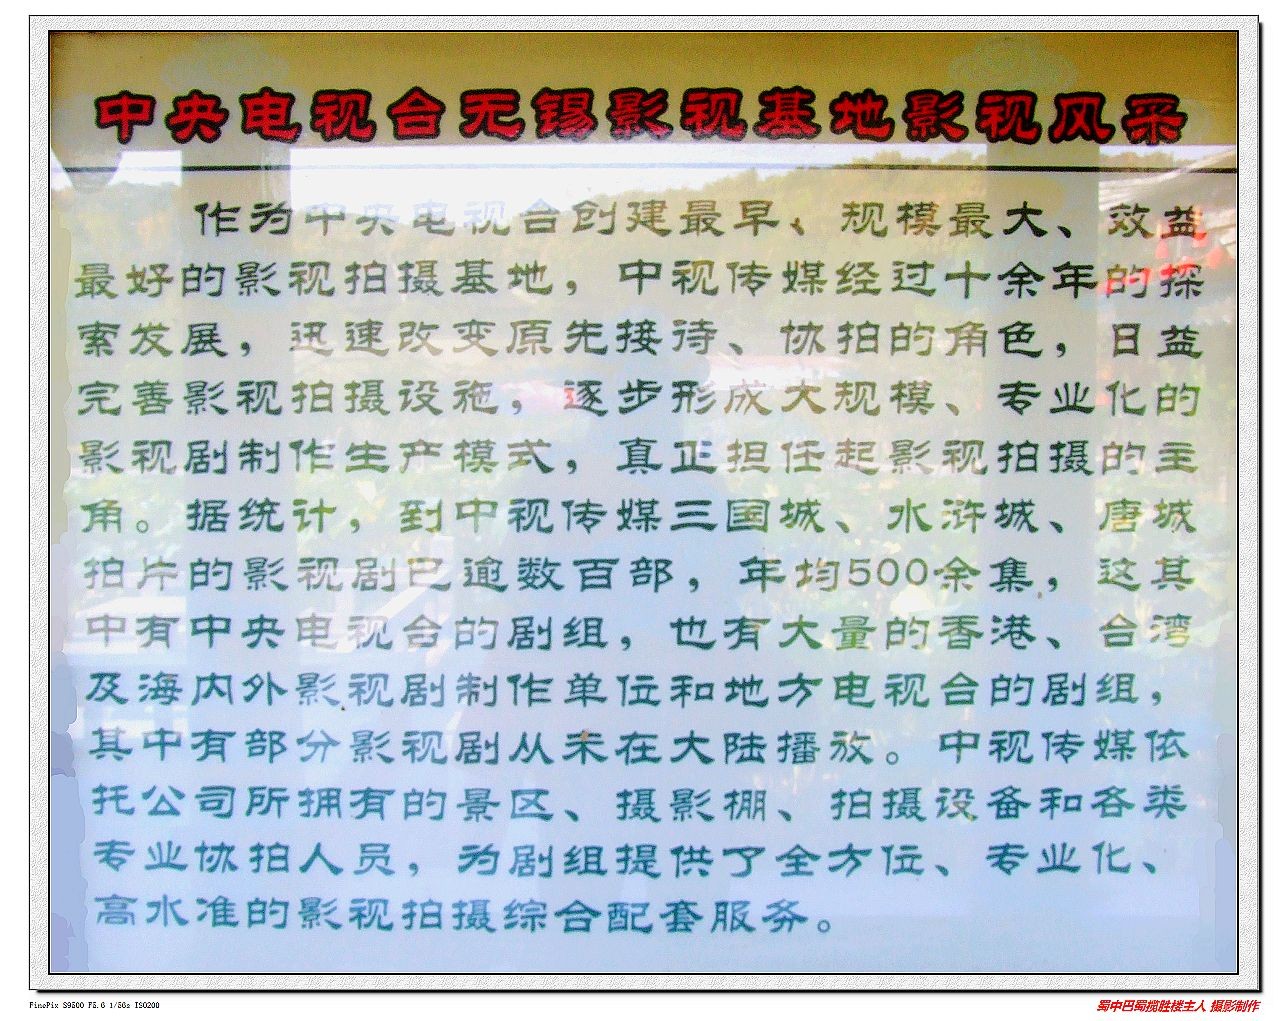 中央电视台无锡影视基地影视风采
作为中央电视台创建最早、规模最大、效益
最好的影视拍摄基地，中视传媒经过十余年的探
索发展，迅速改变原先接待、协拍的角色，日益
完善影视拍摄设施，逐步形成大规模、专业化的
影视剧制作生产模式，真正担任起影视拍摄的主
角。据统计，到中视传媒三国城、水浒城、唐城
拍片的影视剧已逾数百部，年均500余集，这其
中有中央电视台的剧组，也有大量的香港、台湾
及海内外影视剧制作单位和地方电视台的剧组，
其中有部分影视剧从未在大陆播放。中视传媒依
托公司所拥有的景区、摄影棚、拍摄设备和各类
专业协拍人员，为剧组提供了全方位、专业化、
高水准的影视拍摄综合配套服务。
FinePix S9500 F5.6 1/56s ISO200
蜀中巴蜀揽胜楼主人 摄影制作